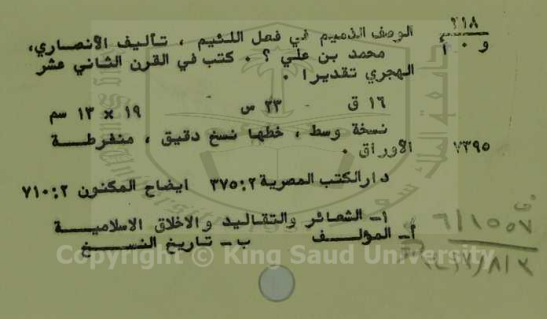 ٢١٨
و ٠ أ
الوصف الذميم في فعل اللئيم ، تأليف الأنصاري،
محمد بن علي ؟ ٠ كتب في القرن الثاني عشر
الهجري تقديرا ٠
١٦ ق ٢٣ س ١٩ × ١٣ سم
نسخة وسط ، خطها نسخ دقيق ، منفرطة
الأوراق ٠ ٧٣٩٥
دار الكتب المصرية ٣٧٥:٢ ايضاح المكنون ٧١٠:٢
١- الشعائر والتقاليد والاخلاق الاسلامية
أ- المؤلف ب- تاريخ النسخ
Copyright © King Saud University